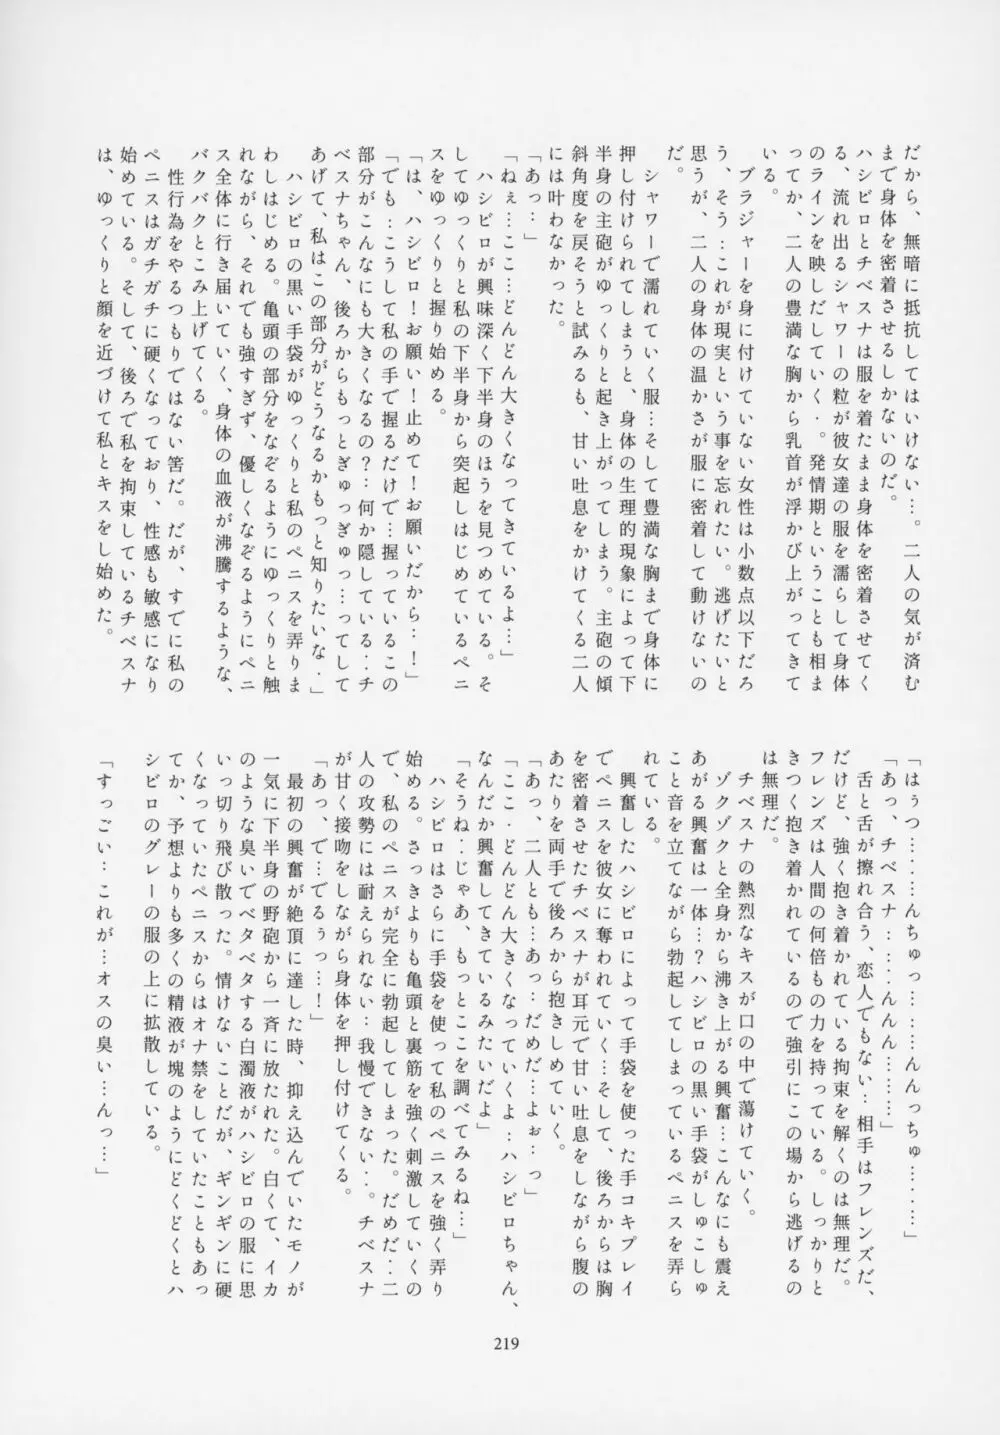 だから、無暗に抵抗してはいけない…。二人の気が済む
まで身体を密着させるしかないのだ。
ハシビロとチベスナは服を着たまま身体を密着させてく
る、流れ出るシャワーの粒が彼女達の服を濡らして身体
のラインを映しだしていく‥。発情期ということも相ま
ってか、二人の豊満な胸から乳首が浮かび上がってきて
いる。
ブラジャーを身に付けていない女性は小数点以下だろ
う、そう‥これが現実という事を忘れたい。逃げたいと
思うが、二人の身体の温かさが服に密着して動けないの
だ。
シャワーで濡れていく服…そして豊満な胸まで身体に
押し付けられてしまうと、身体の生理的現象によって下
半身の主砲がゆっくりと起き上がってしまう。主砲の傾
斜角度を戻そうと試みるも、甘い吐息をかけてくる二人
には叶わなかった。
「あっ‥」
「ねぇ…ここ…どんどん大きくなってきているよ…」
ハシビロが興味深く下半身のほうを見つめている。そ
してゆっくりと私の下半身から突起しはじめているペニ
スをゆっくりと握り始める。
「は、ハシビロ！お願い！止めて！お願いだから‥！」
「でも…こうして私の手で握るだけで…握っているこの
部分がこんなにも大きくなるの？‥何か隠している‥チ
ベスナちゃん、後ろからもっとぎゅっぎゅっ…ってして
あげて、私はこの部分がどうなるかもっと知りたいな‥」
ハシビロの黒い手袋がゆっくりと私のペニスを弄りま
わしはじめる。亀頭の部分をなぞるようにゆっくりと触
れながら、それでも強すぎず、優しくなぞるようにペニ
ス全体に行き届いていく、身体の血液が沸騰するような、
バクバクとこみ上げてくる。
性行為をやるつもりではない筈だ。だが、すでに私の
ペニスはガチガチに硬くなっており、性感も敏感になり
始めている。そして、後ろで私を拘束しているチベスナ
は、ゆっくりと顔を近づけて私とキスをし始めた。
「はぅつ…‥…んちゅっ…‥…んんっちゅ…‥…」
「あっ、チベスナ‥‥‥んんん…‥…」
舌と舌が擦れ合う、恋人でもない‥相手はフレンズだ、
だけど、強く抱き着かれている拘束を解くのは無理だ。
フレンズは人間の何倍もの力を持っている。しっかりと
きつく抱き着かれているので強引にこの場から逃げるの
は無理だ。
チベスナの熱烈なキスが口の中で蕩けていく。
ゾクゾクと全身から沸き上がる興奮…こんなにも震え
あがる興奮は一体…？ハシビロの黒い手袋がしゅこしゅ
こと音を立てながら勃起してしまっているペニスを弄ら
れている。
興奮したハシビロによって手袋を使った手コキプレイ
でペニスを彼女に奪われていく…そして、後ろからは胸
を密着させたチベスナが耳元で甘い吐息をしながら腹の
あたりを両手で後ろから抱きしめていく。
「あっ、二人とも…あっ‥だめだ…よぉ‥っ」
「ここ‥どんどん大きくなっていくよ‥ハシビロちゃん、
なんだか興奮してきているみたいだよ」
「そうね‥じゃあ、もっとここを調べてみるね…」
ハシビロはさらに手袋を使って私のペニスを強く弄り
始める。さっきよりも亀頭と裏筋を強く刺激していくの
で、私のペニスが完全に勃起してしまった。だめだ‥二
人の攻勢には耐えられない‥我慢できない‥。チベスナ
が甘く接吻をしながら身体を押し付けてくる。
「あっ、で…でるぅっ…！」
最初の興奮が絶頂に達した時、抑え込んでいたモノが
一気に下半身の野砲から一斉に放たれた。白くて、イカ
のような臭いでベタベタする白濁液がハシビロの服に思
いっ切り飛び散った。情けないことだが、ギンギンに硬
くなっていたペニスからはオナ禁をしていたこともあっ
てか、予想よりも多くの精液が塊のようにどくどくとハ
シビロのグレーの服の上に拡散している。
「すっごい…これが…オスの臭い…んっ…」
219